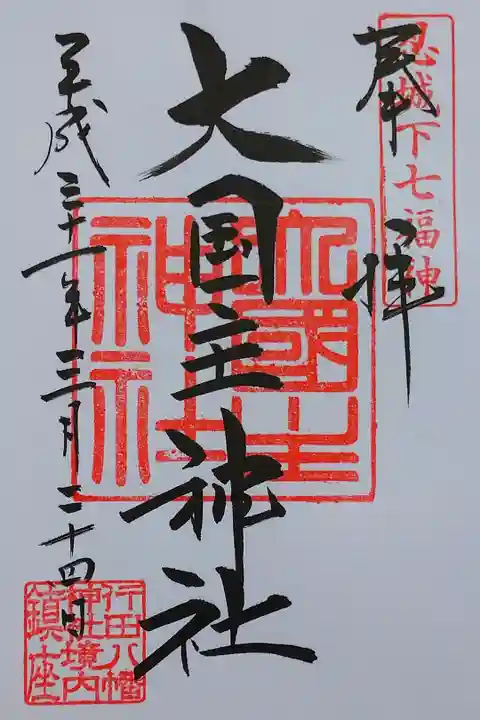 忍城下七福神
奉拝
大国主神社
大國主神社
平成三十一年三月二十四日
行田八幡
神社境内
鎮座